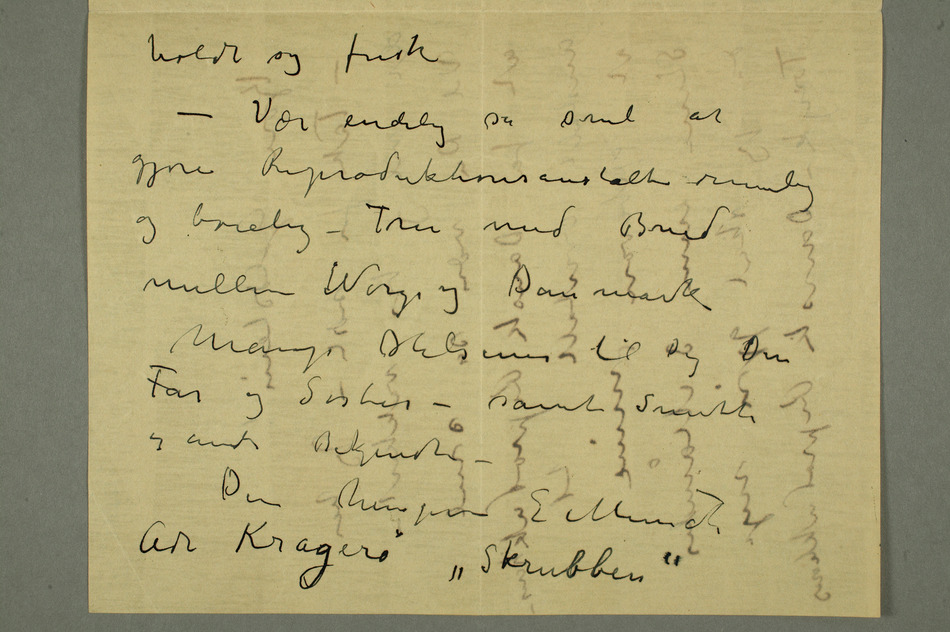 holdt og frisk
– Vær endelig så snil at
gjøre Reproduktionsanstalten rimelig
og
med Brud
mellem Norge og Danmark
Mange Hilsener til dig Din
Far og Søster – samt Smitte
og andre Bekjendte –
Din hengivne E Munch
Adr Kragerø „Skrubben“